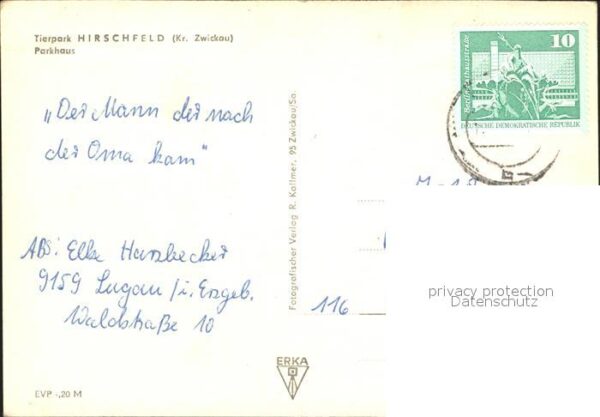 Tierpark HIRSCHFELD (Kr. Zwickau)
Parkhaus
10
Berlin, Rathausstraße
DEUTSCHE DEMOKRATISCHE REPUBLIK
„Der Mann der nach
der Oma kam"
Fotografischer Verlag R. Kallmer, 95 Zwickau/Sa.
privacy protection
Datenschutz
ABS: Elke Harzbecker
9159 Lugau /i. Erzgeb.
Waldstraße 10
116
ERKA
EVP -,20 M